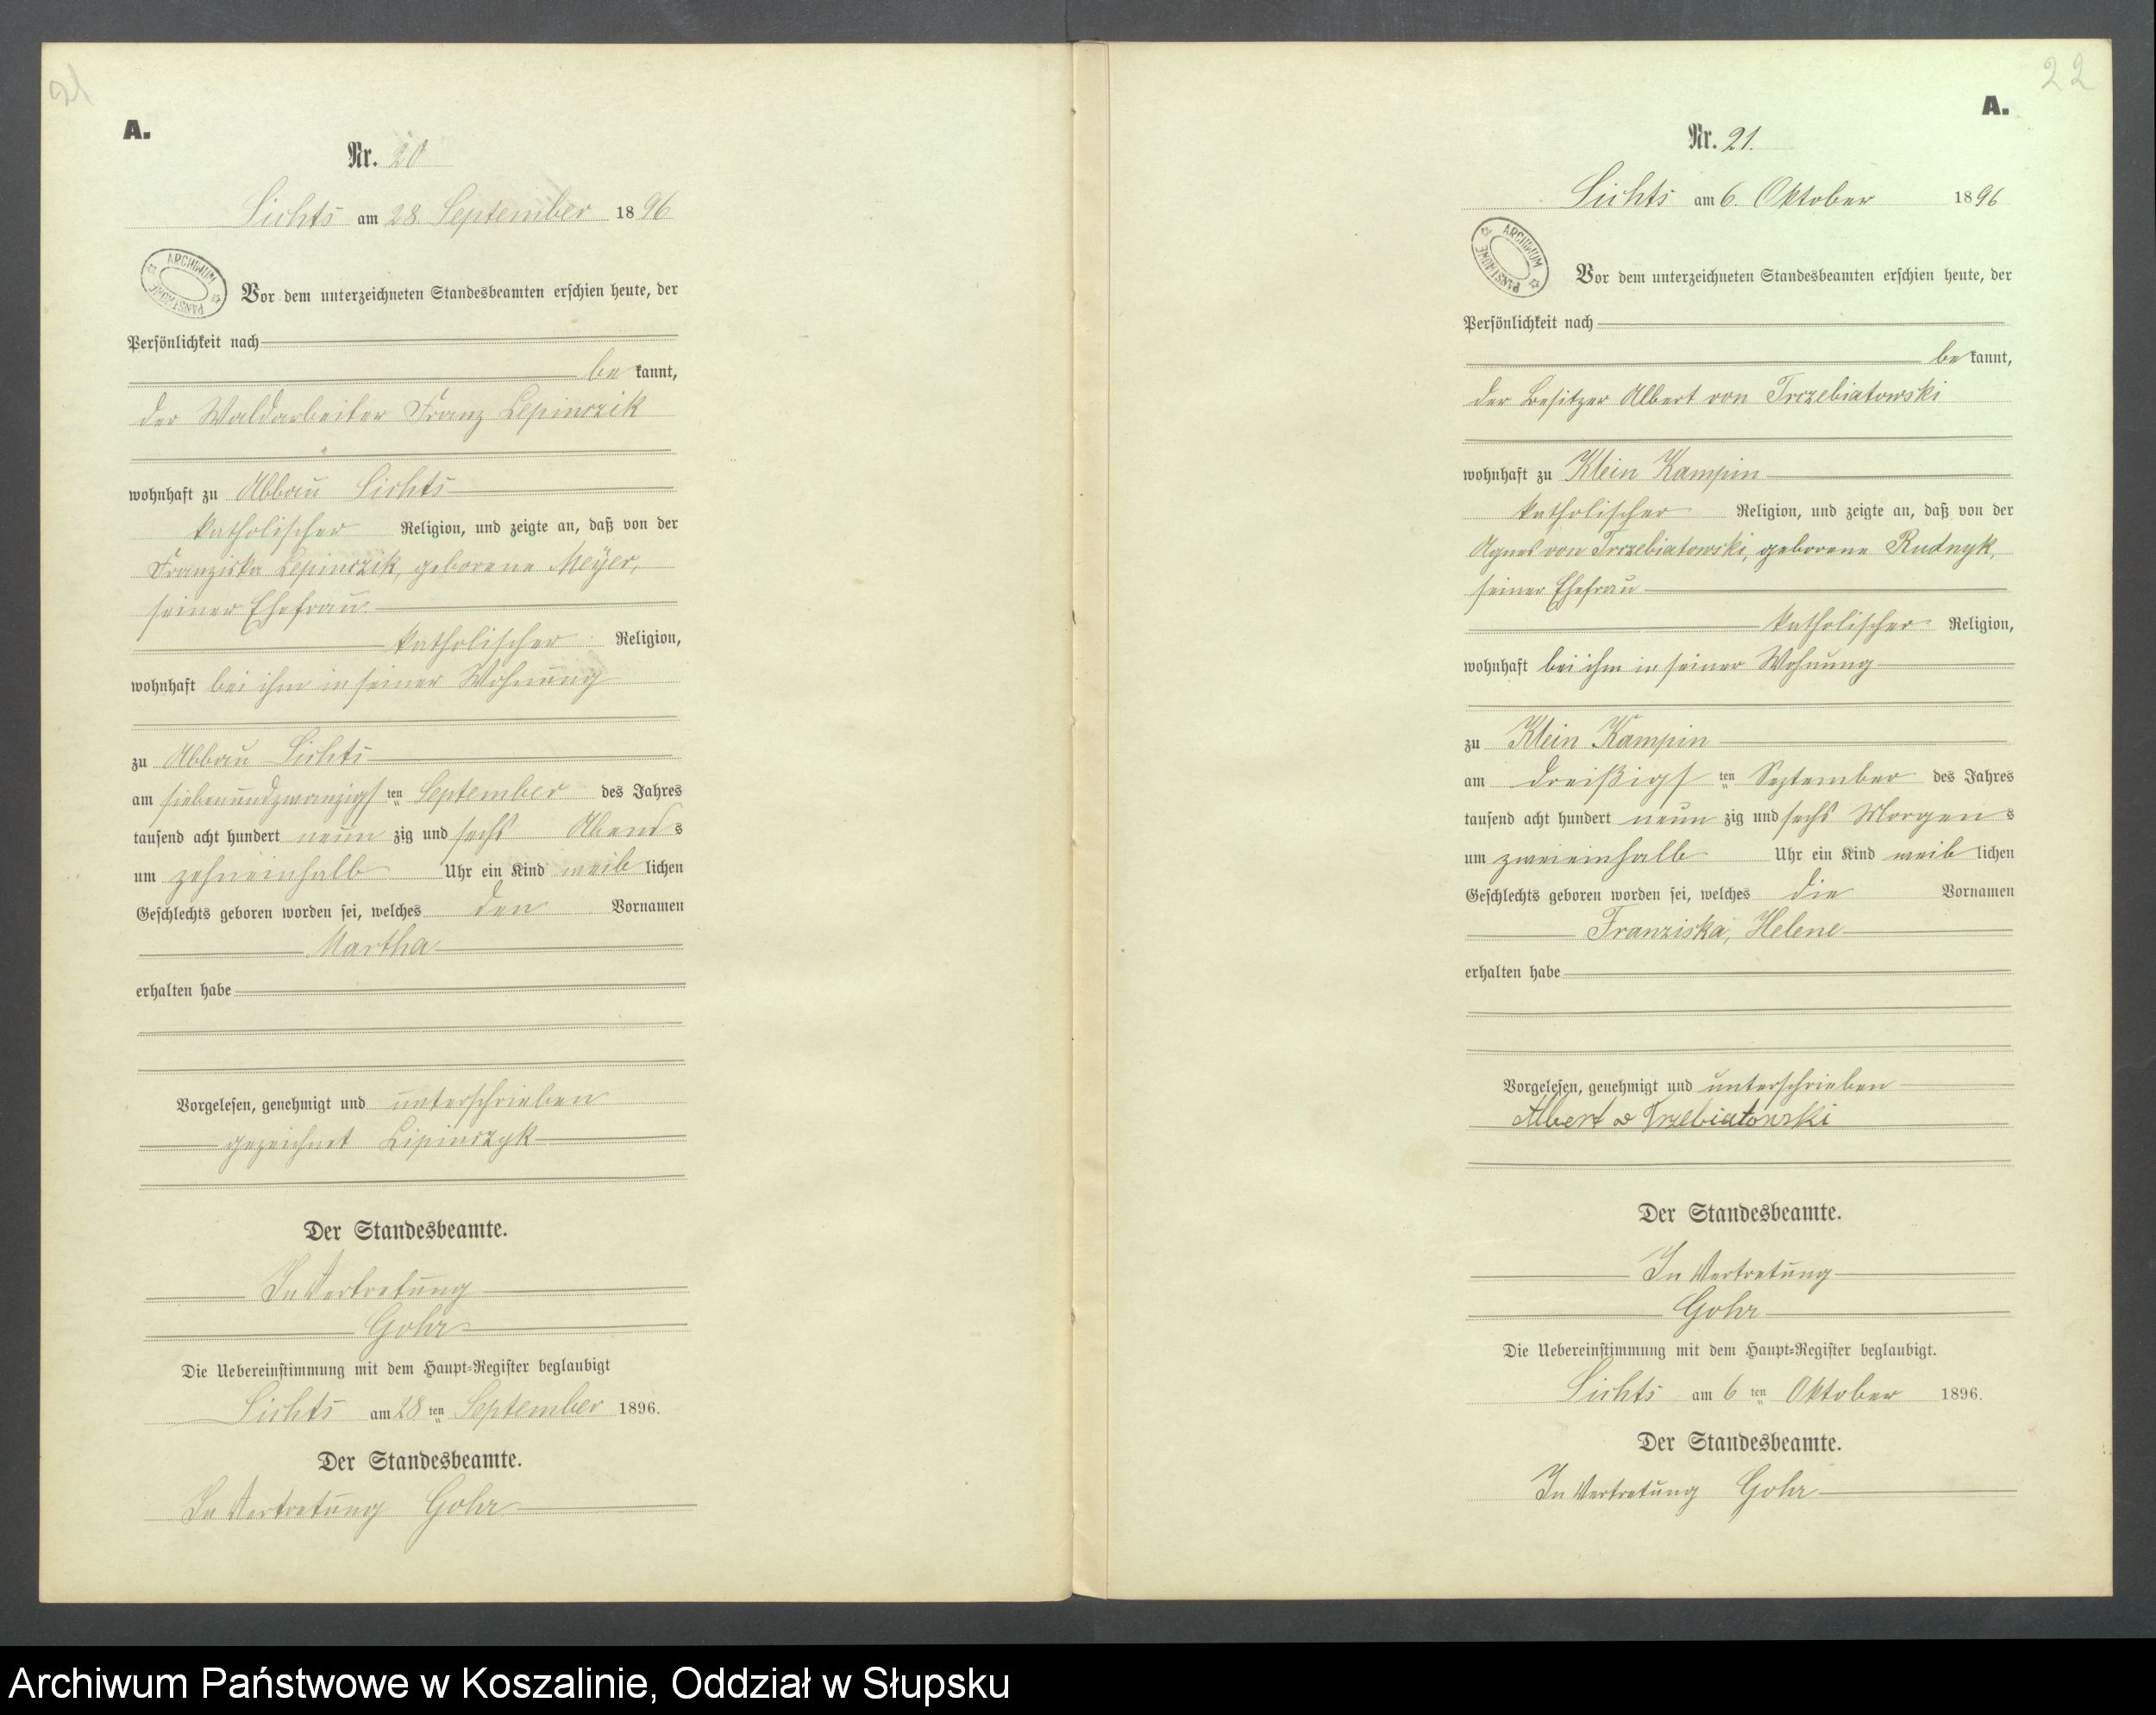 21
A.
Nr. 20
Lichts am 28. September 1896
ARCHIWUM PAŃSTWOWE
Vor dem unterzeichneten Standesbeamten erschien heute, der
Persönlichkeit nach
be kannt,
der Waldarbeiter Franz Lepinczik
wohnhaft zu Abbau Lichts
katholischer Religion, und zeigte an, daß von der
Franziska Lepinczik, geborene Meyer,
seiner Ehefrau
katholischer Religion,
wohnhaft bei ihm in seiner Wohnung
zu Abbau Lichts
am siebenundzwanzigs ten September des Jahres
tausend acht hundert neun zig und sechs Abend s
um zehneinhalb Uhr ein Kind weib lichen
Geschlechts geboren worden sei, welches den Vornamen
Martha
erhalten habe
Vorgelesen, genehmigt und unterschrieben
gezeichnet Lipinczyk
Der Standesbeamte.
In Vertretung
Gohr
Die Uebereinstimmung mit dem Haupt-Register beglaubigt
Lichts am 28 ten September 1896.
Der Standesbeamte.
In Vertretung Gohr
22
A.
Nr. 21.
Lichts am 6. Oktober 1896
ARCHIWUM PAŃSTWOWE
Vor dem unterzeichneten Standesbeamten erschien heute, der
Persönlichkeit nach
be kannt,
der Besitzer Albert von Trczebiatowski
wohnhaft zu Klein Kampin
katholischer Religion, und zeigte an, daß von der
Agnes von Trczebiatowski, geborene Rudnyk,
seiner Ehefrau
katholischer Religion,
wohnhaft bei ihm in seiner Wohnung
zu Klein Kampin
am dreißigs ten September des Jahres
tausend acht hundert neun zig und sechs Morgen s
um zweieinhalb Uhr ein Kind weib lichen
Geschlechts geboren worden sei, welches die Vornamen
Franziska, Helene
erhalten habe
Vorgelesen, genehmigt und unterschrieben
Albert v Trzebiatowski
Der Standesbeamte.
In Vertretung
Gohr
Die Uebereinstimmung mit dem Haupt-Register beglaubigt.
Lichts am 6 ten Oktober 1896.
Der Standesbeamte.
In Vertretung Gohr
Archiwum Państwowe w Koszalinie, Oddział w Słupsku